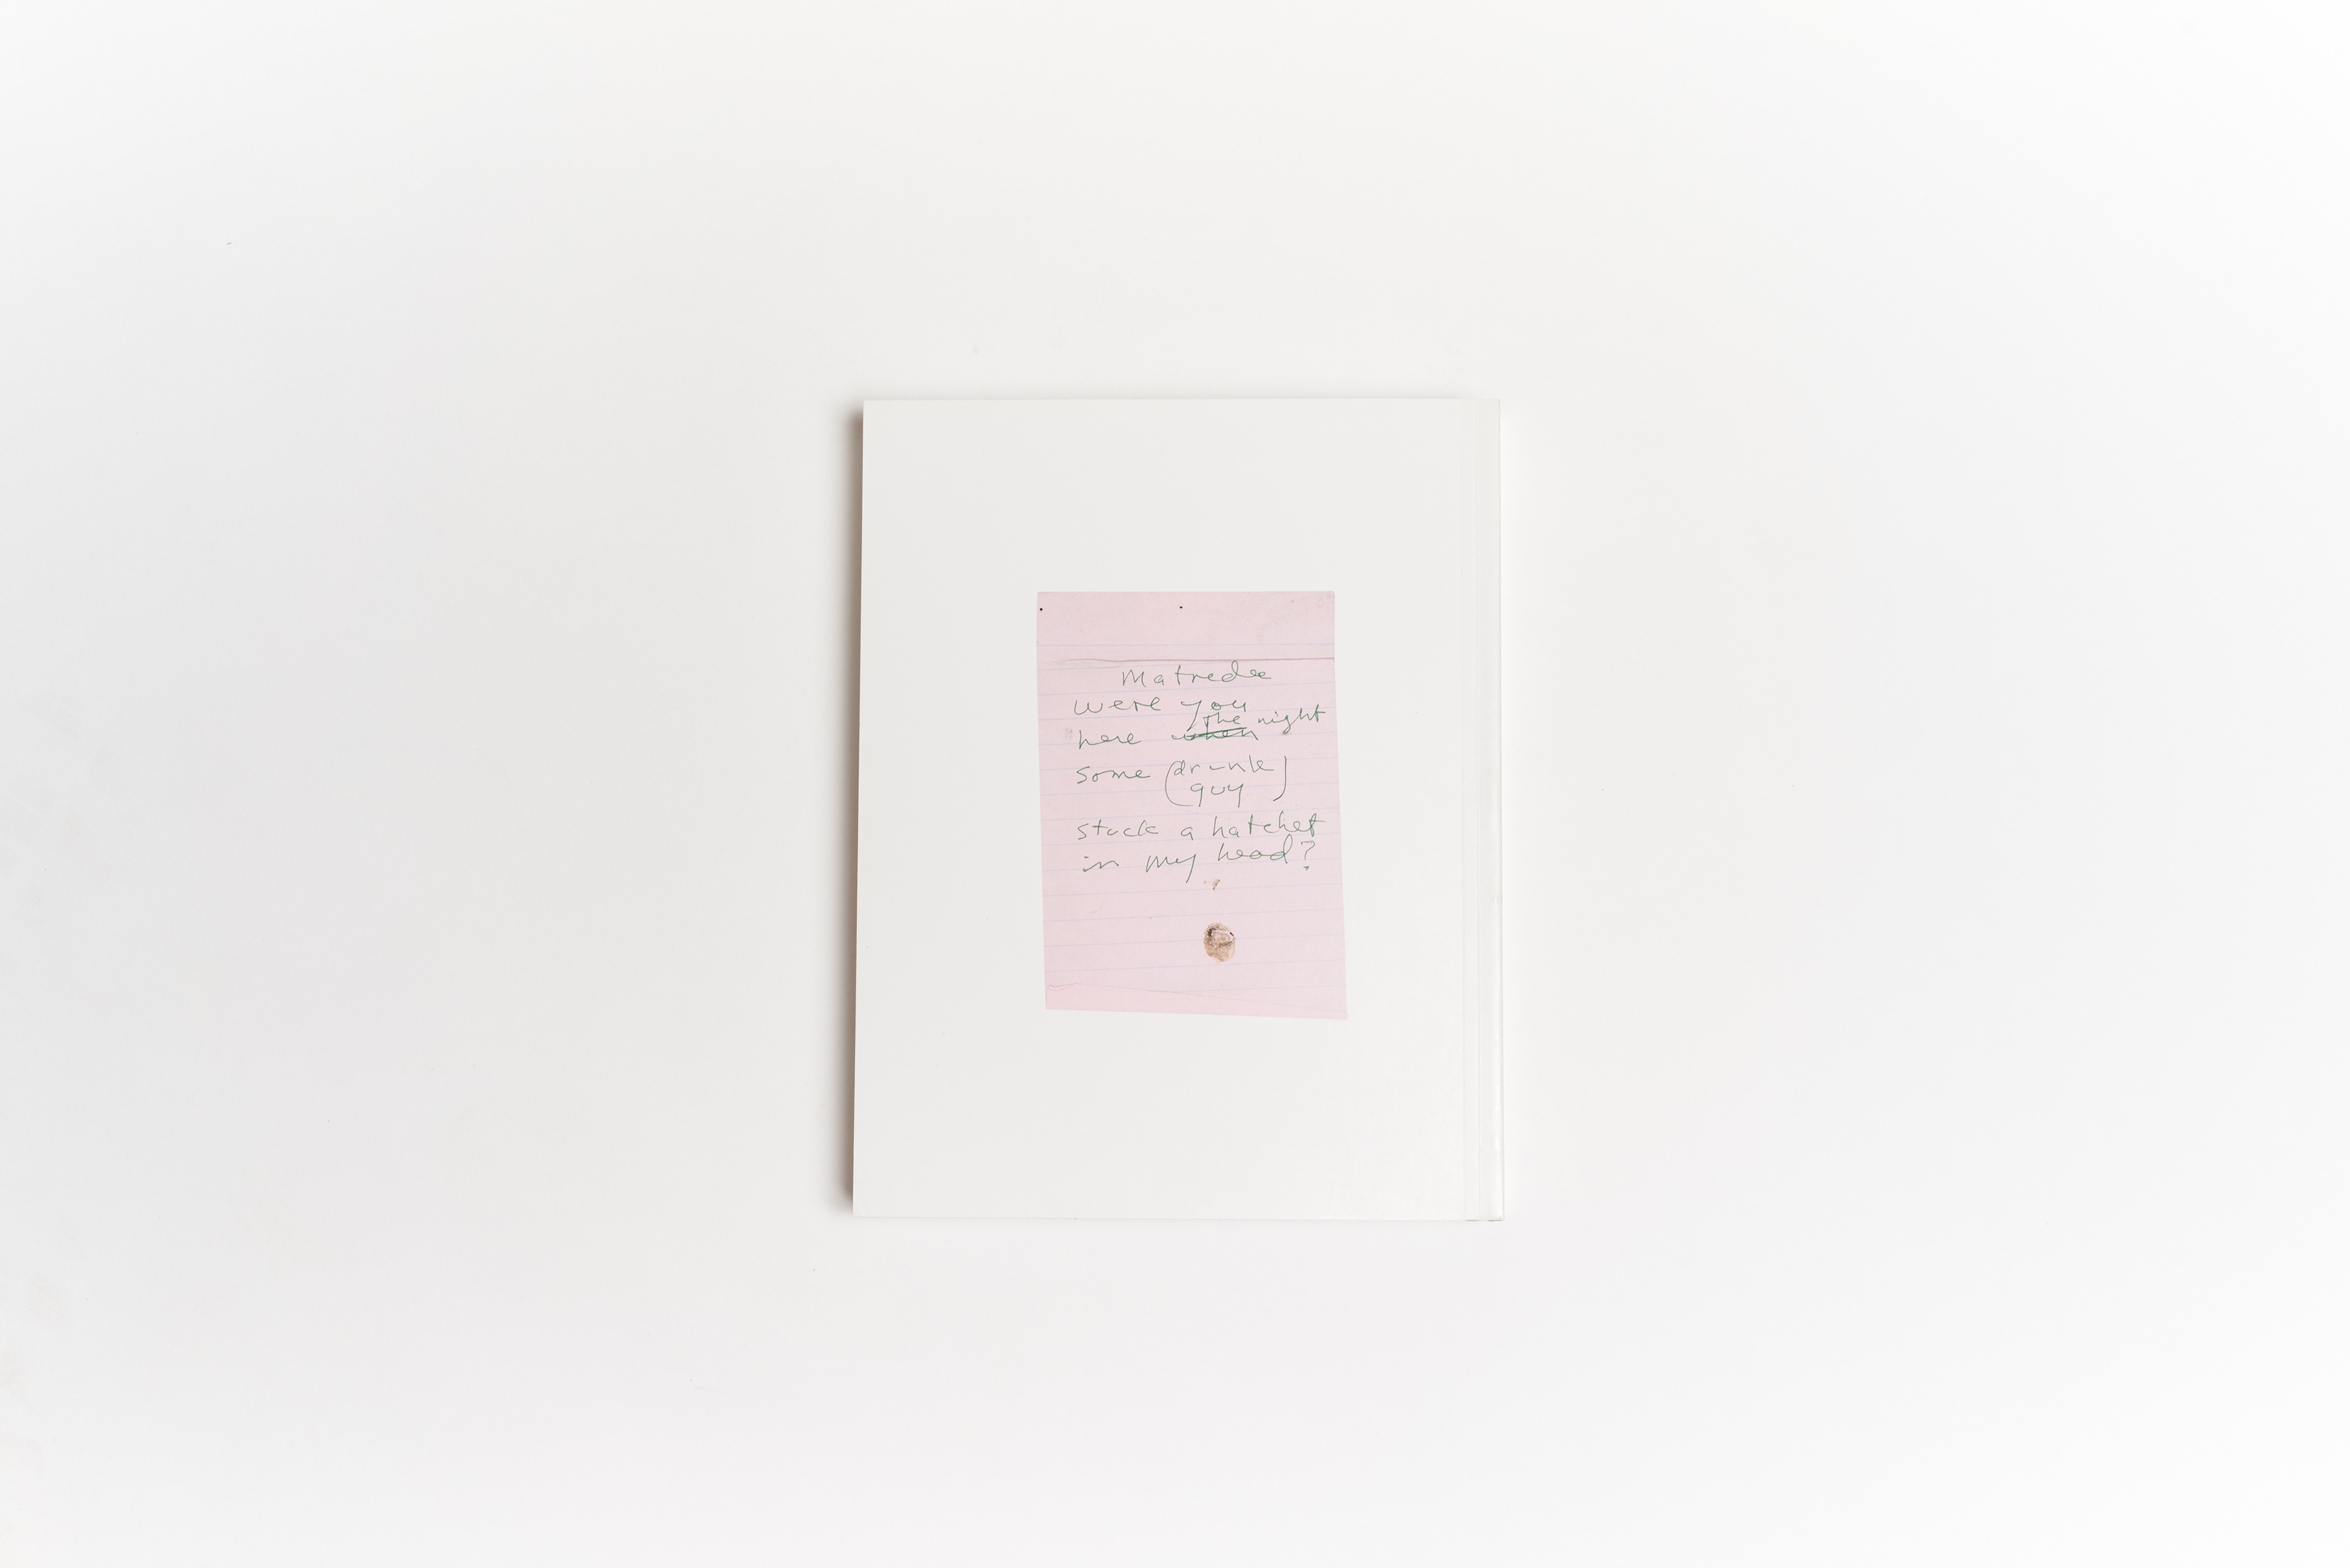 Matredee
were you
here when the night
some (drunk
guy)
stuck a hatchet
in my head?